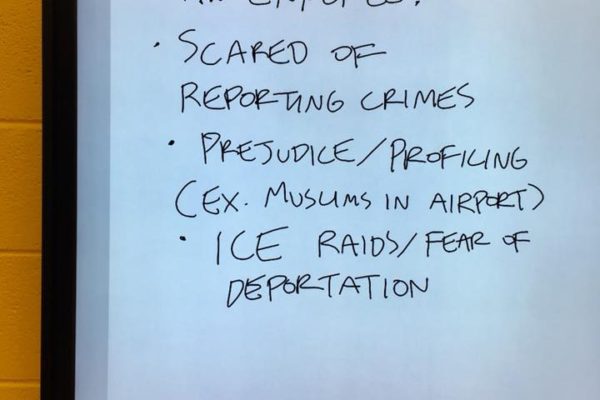 • SCARED OF
REPORTING CRIMES
• PREJUDICE/PROFILING
(EX. MUSLIMS IN AIRPORT)
• ICE RAIDS/FEAR OF
DEPORTATION